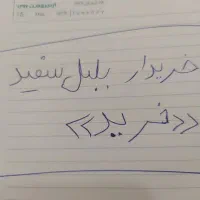 خریدار بلبل سفید
«خرید»